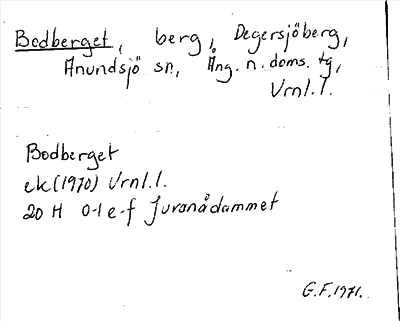 Bodberget, berg, Degersjöberg,
Anundsjö sn, Ång. n. doms. tg,
Vrnl.l.
Bodberget
ek (1970) Vrnl.l.
20 H 0-1 e-f Juvanådammet
G.F. 1971.